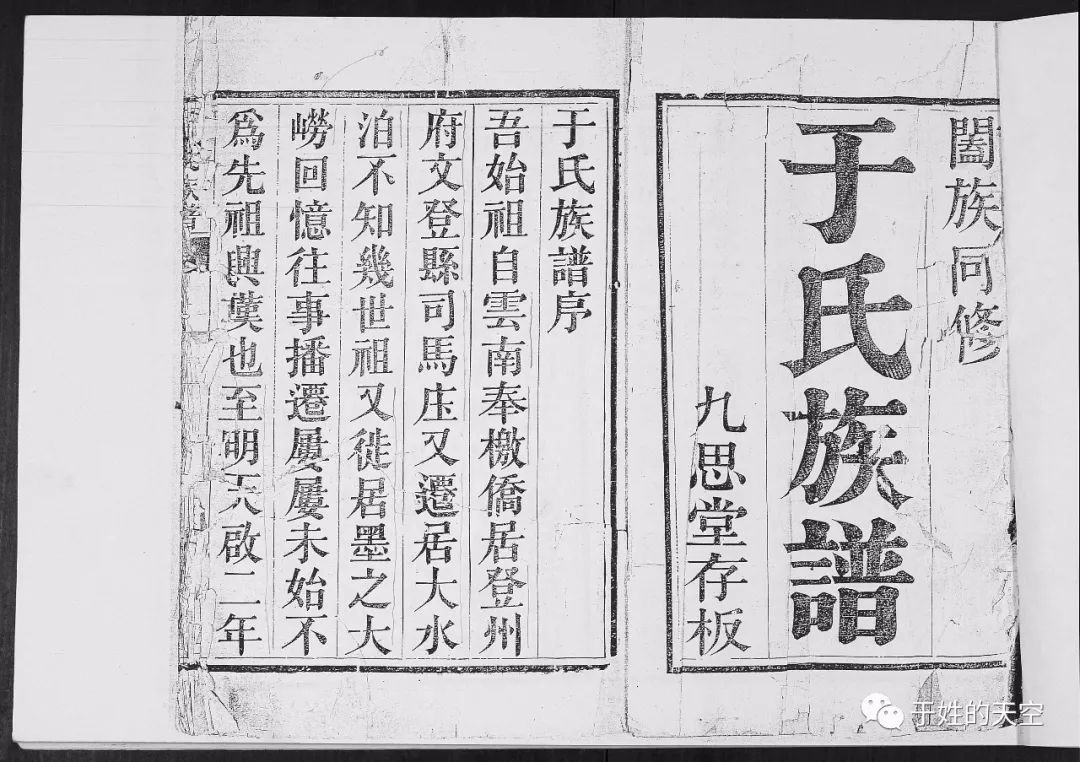 闔族同修
于氏族譜
九思堂存板
于氏族譜序
吾始祖自雲南奉檄僑居登州
府文登縣司馬庄又遷居大水
泊不知幾世祖又徙居墨之大
嶗回憶往事播遷屢屢未始不
爲先祖興葉也至明天啟二年
族譜
于姓的天空